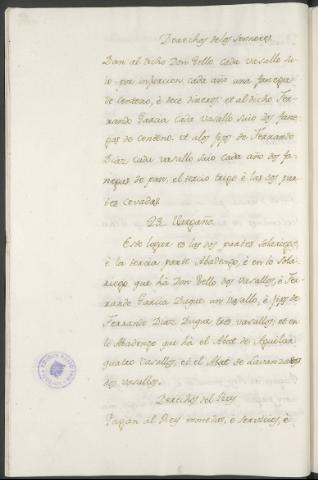 Derechos de los Sennores
Dan al dicho Don Tello cada vasallo su-
io por infurcion cada año una fanega
de Centeno, è doce dineros: et al dicho Fer-
rando Garcia cada vasallo suio dos fane-
gas de Centeno. et alos fijos de Ferrando
Diaz cada vasallo suio cada año dos fa-
negas de pan, el tercio trigo è las dos par-
tes cevada.
23. Vergaño
Este logar es las dos partes Solariego,
è la tercia parte Abadengo, è en lo Sola-
riego que hà Don Tello dos vasallos, è Fer-
rando Garcia Duque un vasallo, è fijos de
Ferrando Diaz Duque tres vasallos; et en
lo Abadengo que hà el Abat de Aguilar
quatro vasallos, et el Abat de Lavanza
dos vasallos.
Derechos del Rey
Pagan al Rey monedas, e servicios, è